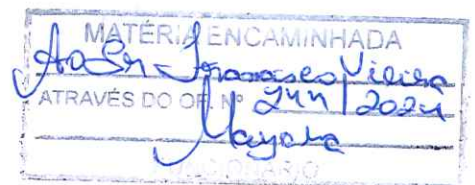 MATÉRIA ENCAMINHADA
Ao Sr Francisco Vieira
ATRAVÉS DO OF. Nº 244/2024
Mayara